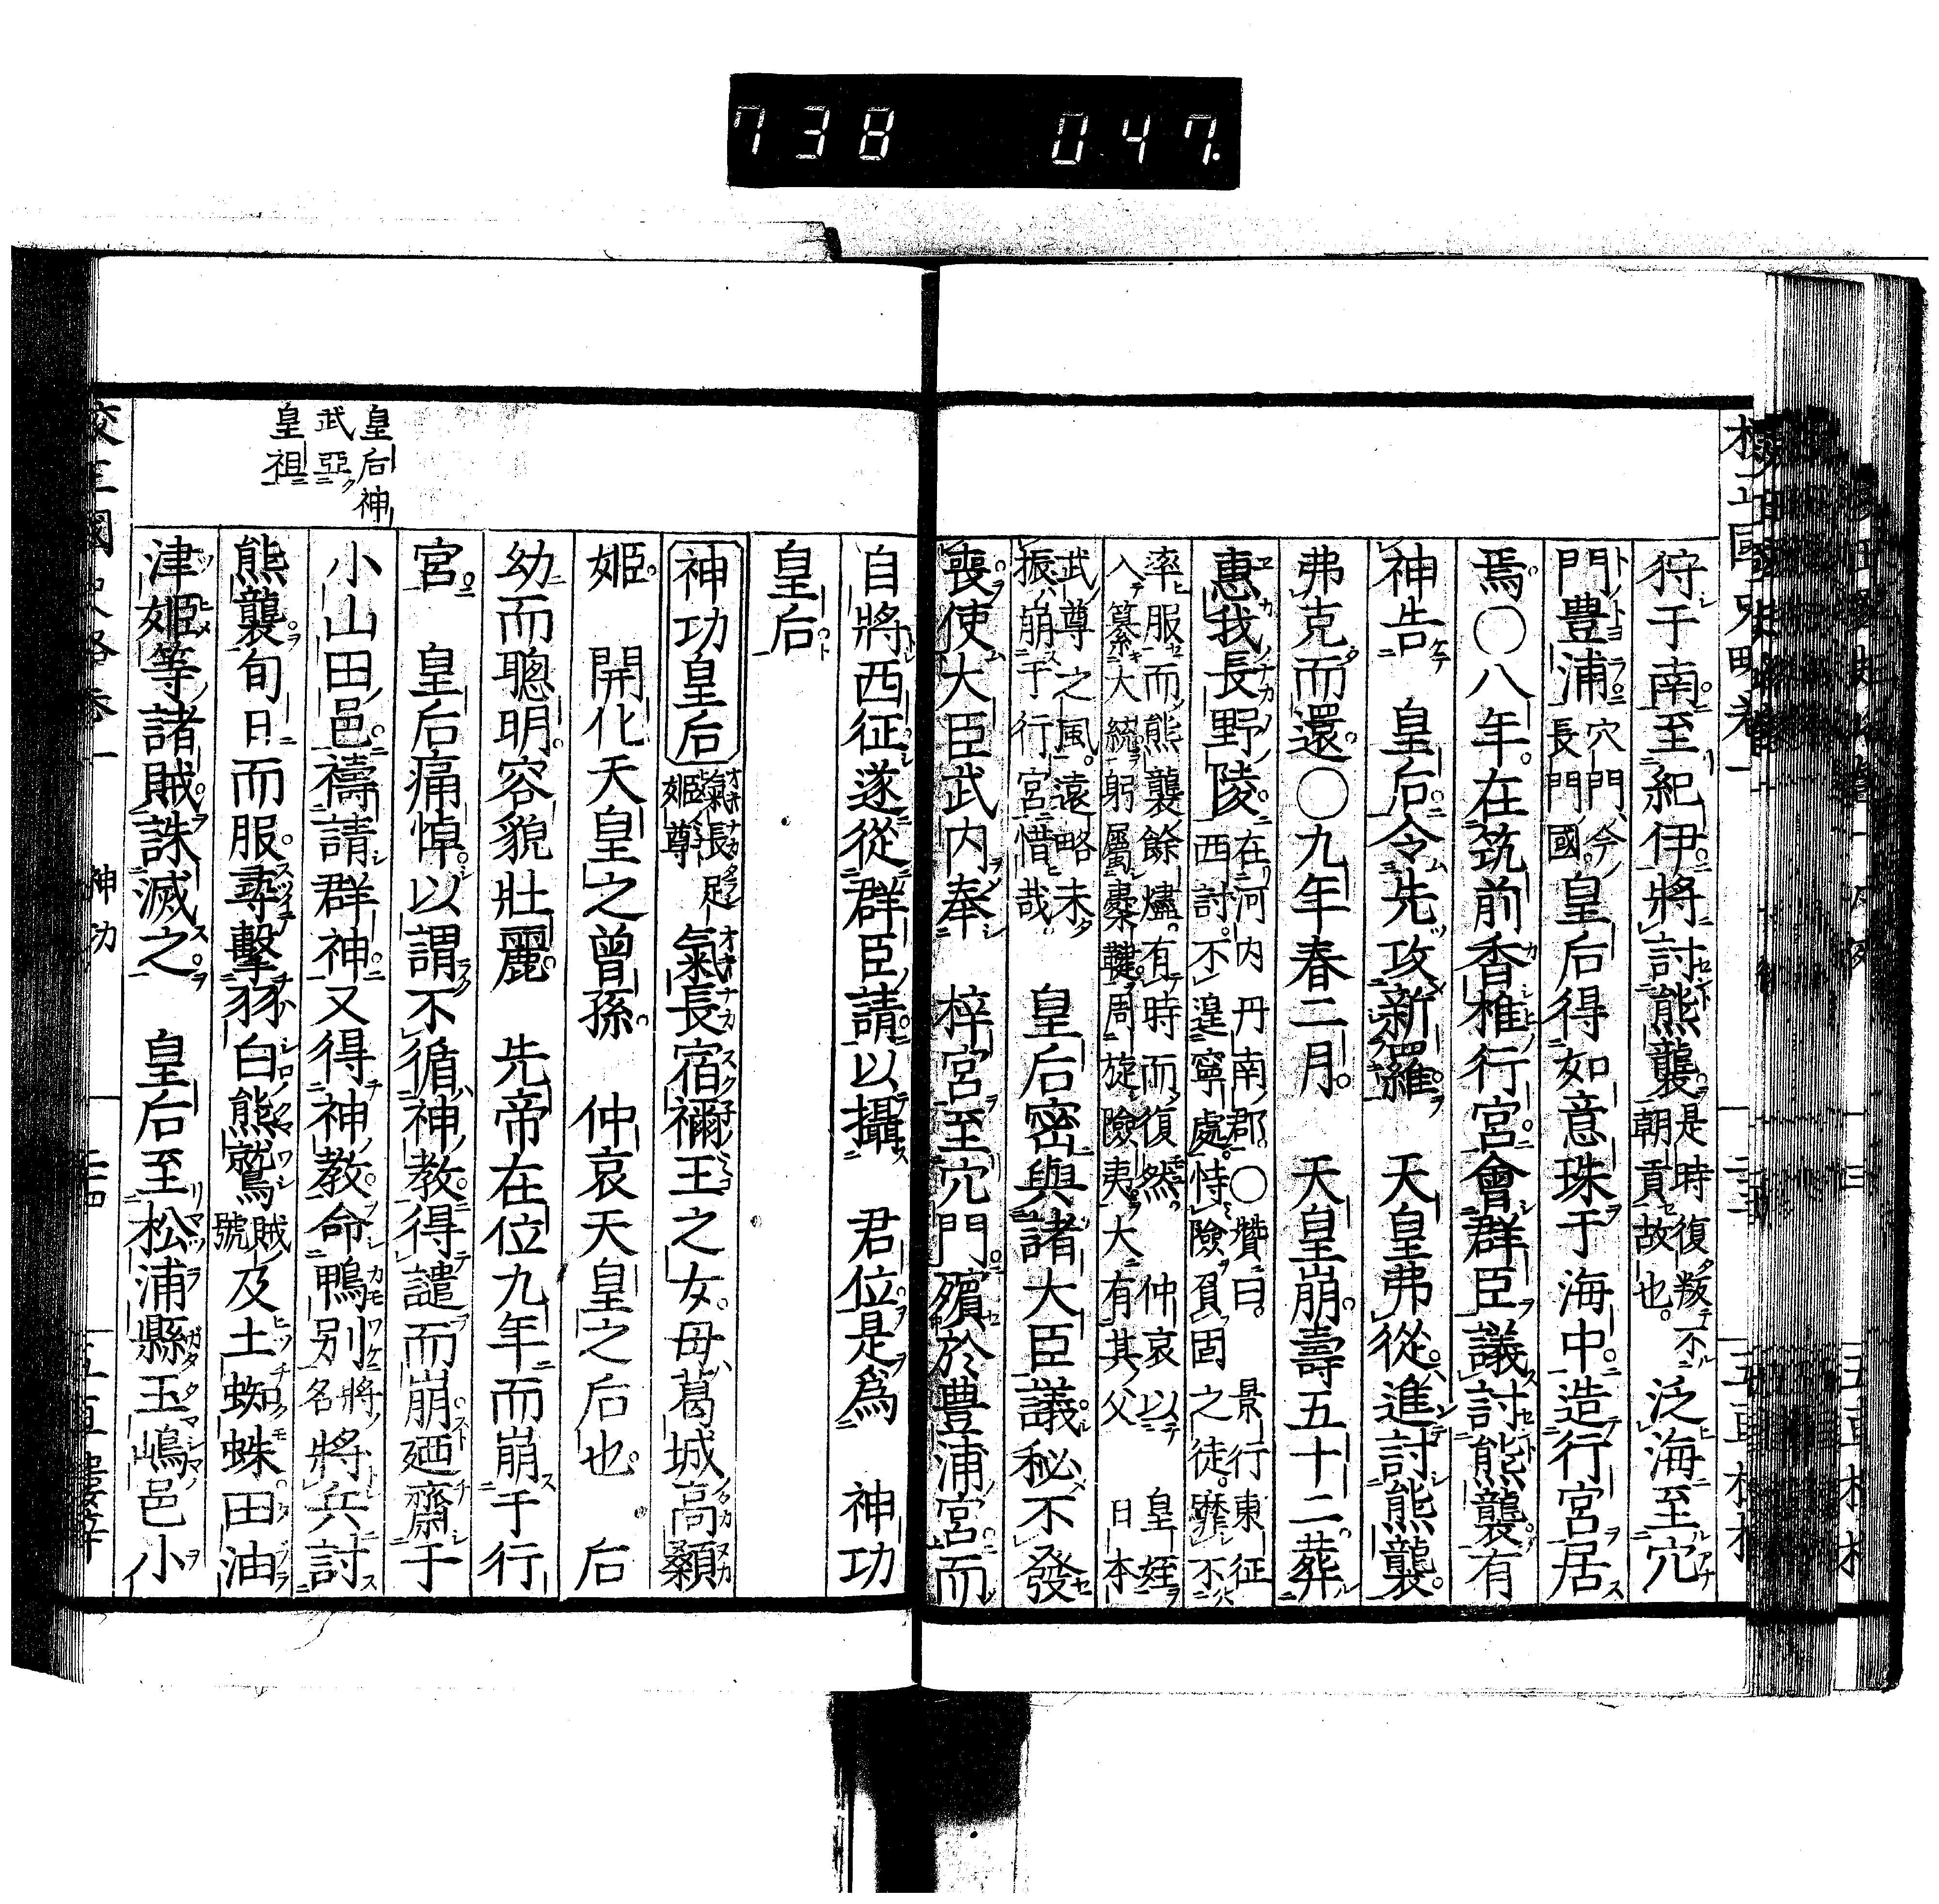 738 047.
狩于南至紀伊將討熊襲是時復叛不朝貢故也。泛海至穴
門豊浦穴門今長門國。皇后得如意珠于海中造行宮居
焉。〇八年。在筑前香椎行宮會群臣議討熊襲有
神告 皇后令先攻新羅 天皇弗從進討熊襲。
弗克而還。〇九年春二月。 天皇崩。壽五十二葬
惠我長野陵在河内丹南郡。〇贊曰。景行東征西討。不遑寧處。恃險負固之徒。靡不
率服而熊襲餘燼。有時而復然。 仲哀以 皇姪入纂大統躬屬櫜鞬周旋險夷大有其父 日本
武尊之風。遠略未振崩于行宮惜哉。 皇后密與諸大臣議秘不發
喪使大臣武内奉 梓宮至穴門殯於豊浦宮而
自將西征遂從群臣請以攝 君位是爲 神功
皇后
神功皇后氣長足姬尊 氣長宿禰王之女。母葛城高顙
姬。 開化天皇之曾孫。 仲哀天皇之后也。 后
幼而聰明。容貌壯麗。 先帝在位九年而崩于行
宮 皇后痛悼以謂不循神教得譴而崩廼齋于
小山田邑禱請群神又得神教命鴨別將名將兵討
熊襲旬日而服尋擊羽白熊鷲賊號及土蜘蛛田油
津姬等諸賊誅滅之 皇后至松浦縣玉嶋邑小
皇后神
武亞
皇祖
神功